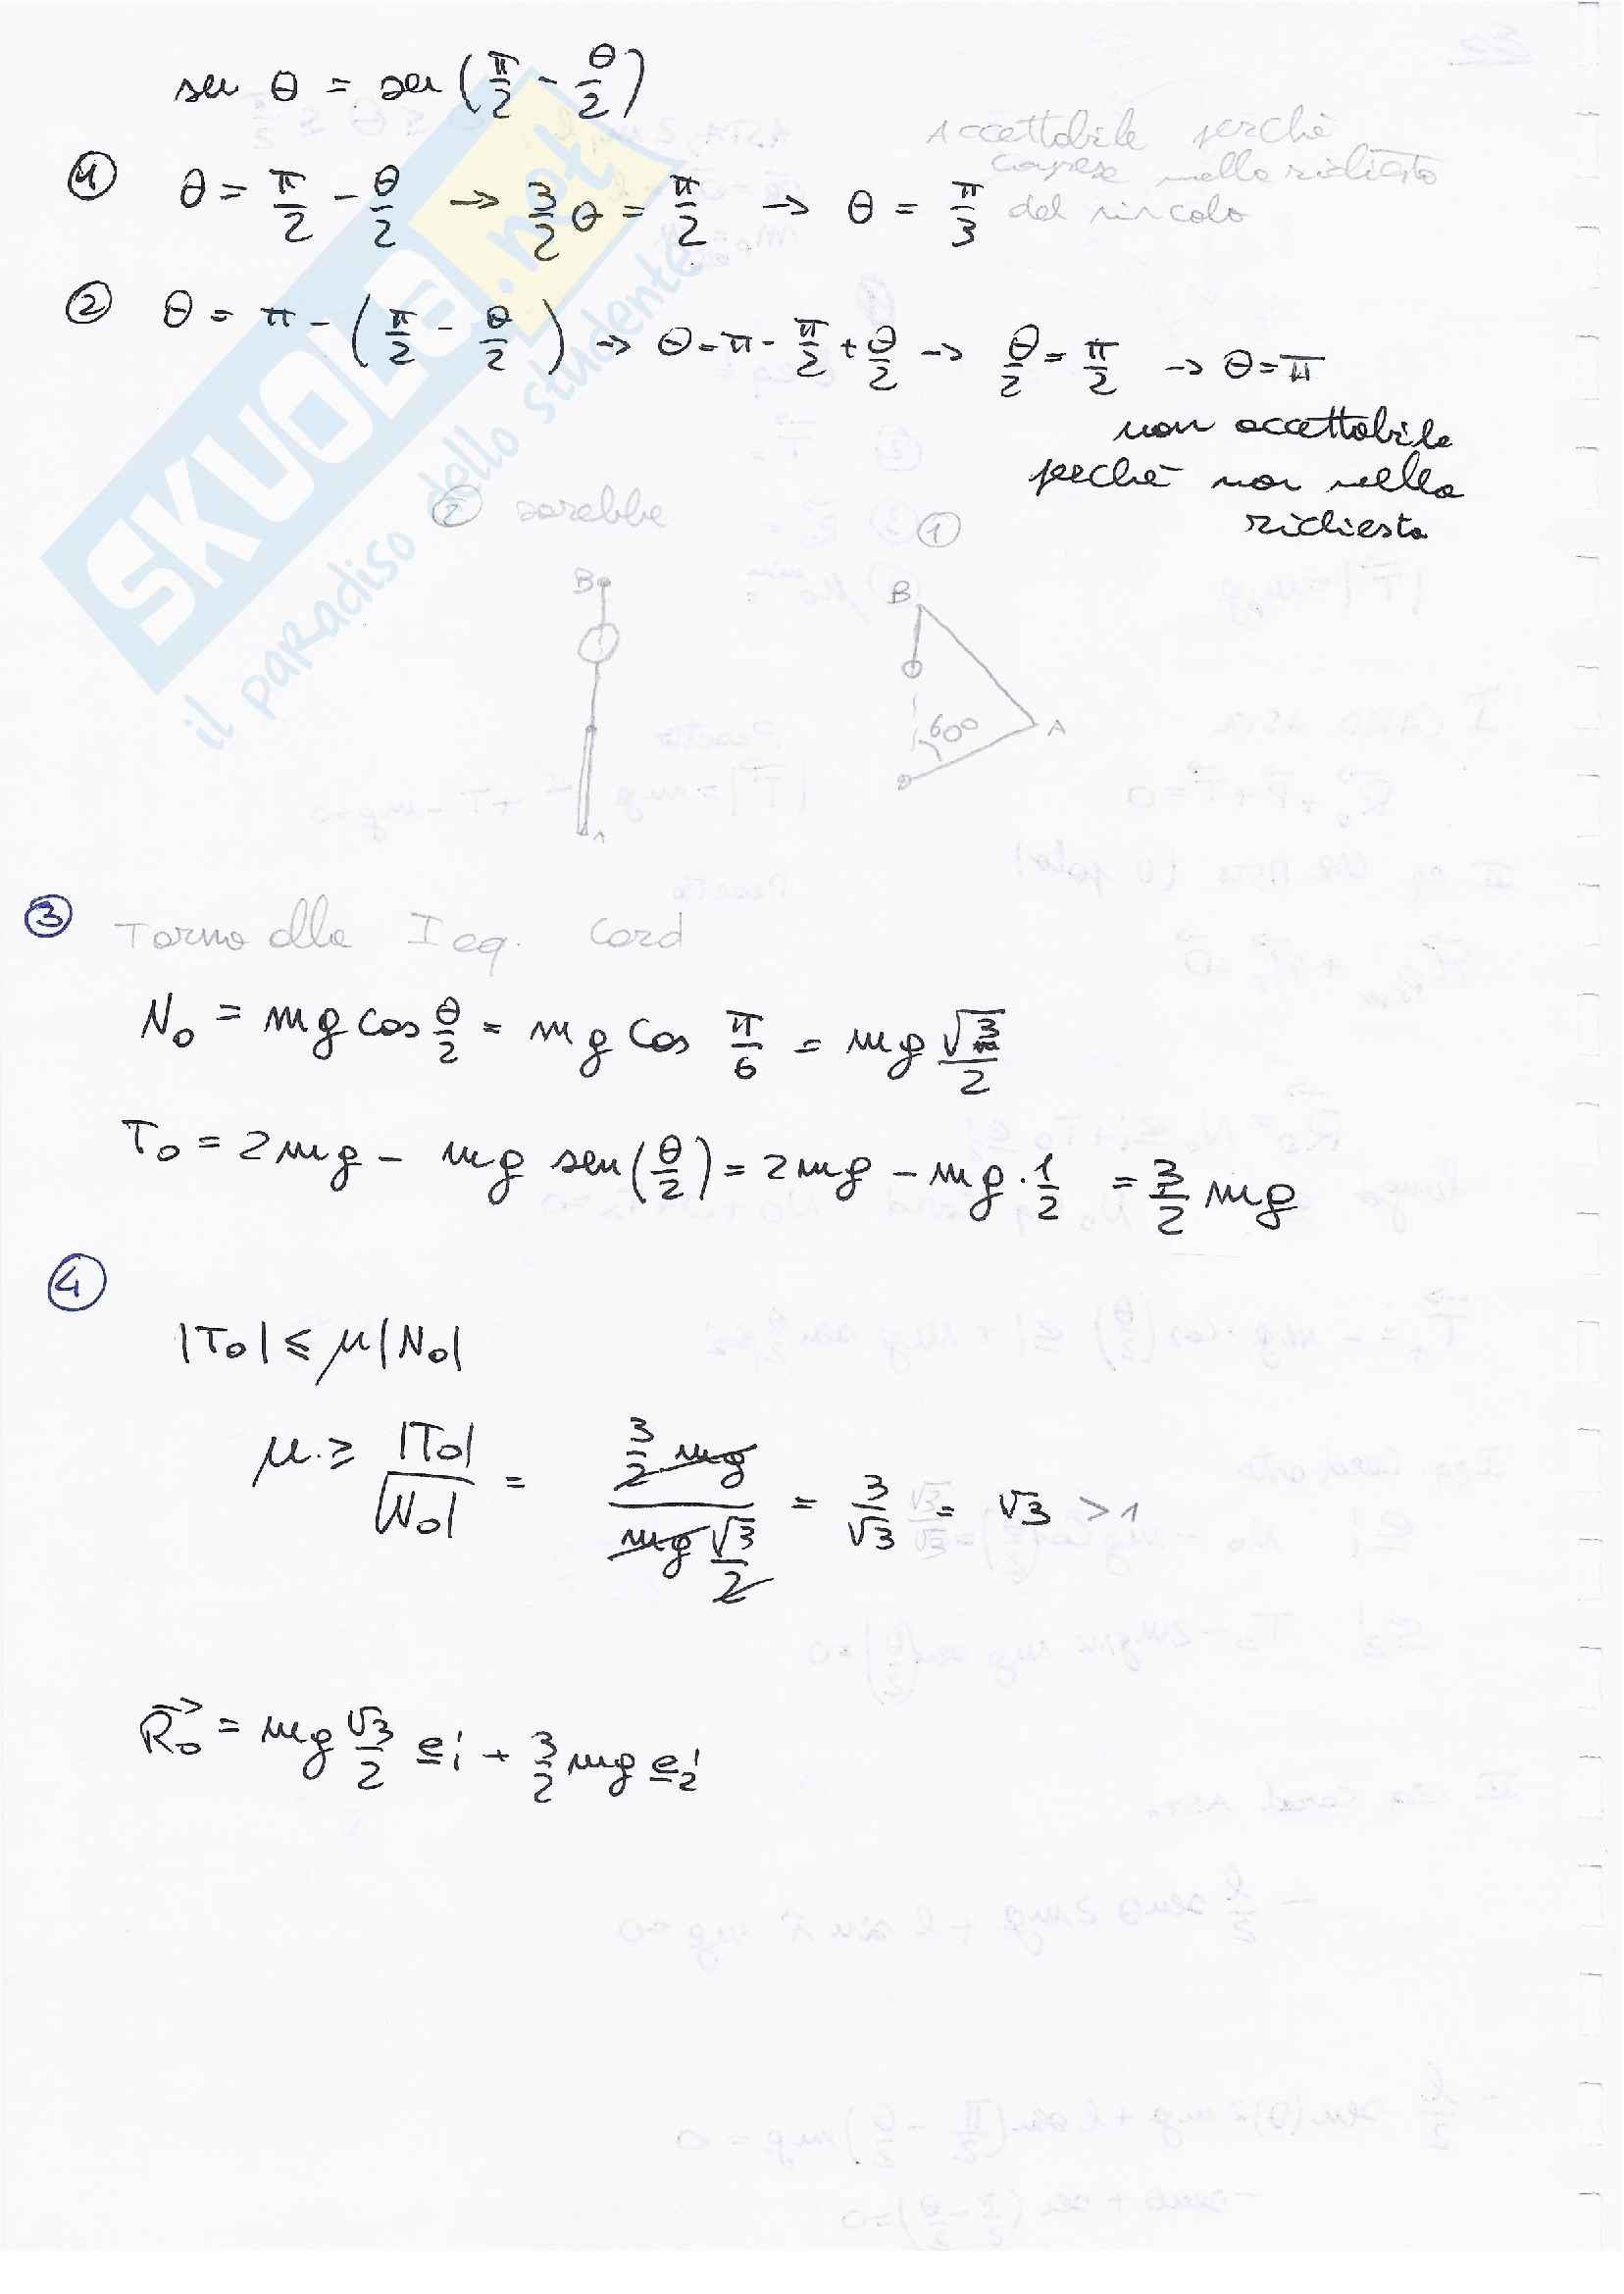 sen θ = sen (π/2 - θ/2)
① θ = π/2 - θ/2 → 3/2 θ = π/2 → θ = π/3
Accettabile perchè
compresa nella richiesta
del vincolo
② θ = π - (π/2 - θ/2) → θ = π - π/2 + θ/2 → θ/2 = π/2 → θ = π
non accettabile
perchè non nella
richiesta
② sarebbe
①
B
A
B
60°
A
SKUOLA.net
il paradiso dello studente
③ Torno alla I eq. Card
N₀ = mg cos θ/2 = mg cos π/6 = mg √3/2
T₀ = 2mg - mg sen(θ/2) = 2mg - mg · 1/2 = 3/2 mg
④
|T₀| ≤ μ|N₀|
μ ≥ |T₀|/|N₀| = (3/2 mg)/(mg √3/2) = 3/√3 √3/√3 = √3 > 1
R₀ = mg √3/2 e₁' + 3/2 mg e₂'